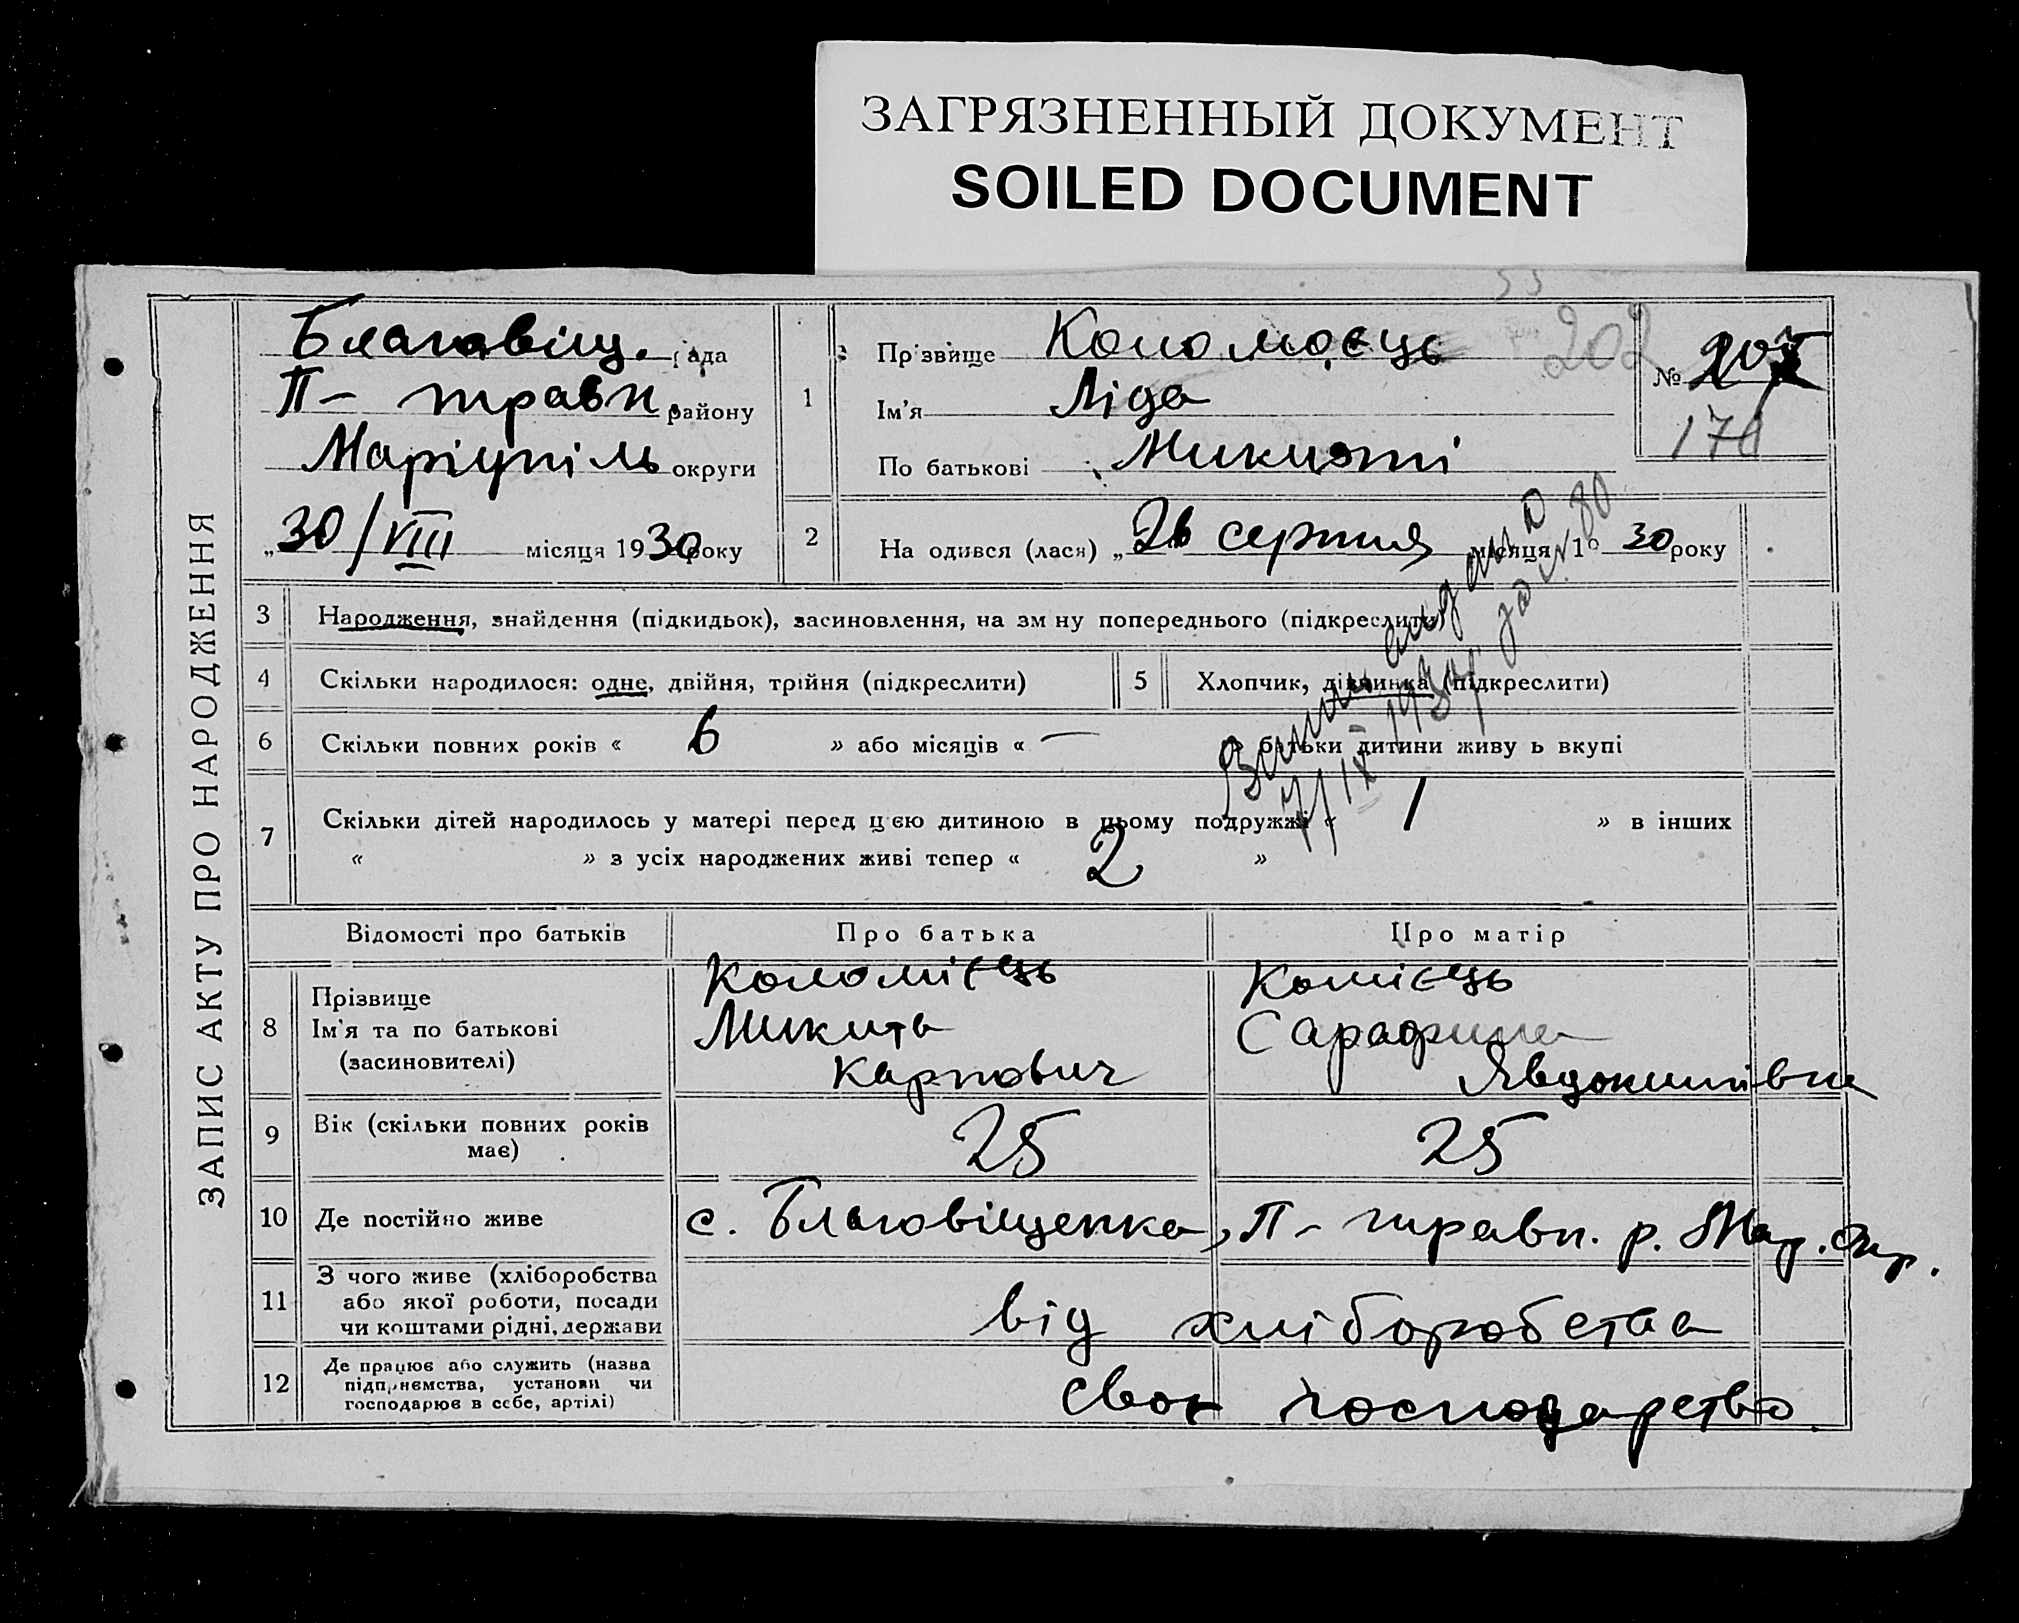 ЗАГРЯЗНЕННЫЙ ДОКУМЕНТ
SOILED DOCUMENT
ЗАПИС АКТУ ПРО НАРОДЖЕННЯ
Благовіщ. рада
П- травн. району
Маріупіль округи
„30/VIII місяця 1930 року
1
Пр звище Коломоєць
202
Ім’я Ліда
По батькові Микиті
№ 207
170
2
На одився (лася) „26 серпня місяця 19 30 року
3 Народження, знайдення (підкидьок), засиновлення, на зм ну попереднього (підкреслити)
4 Скільки народилося: одне, двійня, трійня (підкреслити)
5 Хлопчик, дівчинка (підкреслити)
6 Скільки повних років « 6 » або місяців « — » батьки дитини живу ь вкупі
7 Скільки дітей народилось у матері перед цєю дитиною в цьому подружжі « 1 » в інших
« » з усіх народжених живі тепер « 2 »
7/IX 1937 за № 80
Відомості про батьків Про батька Про матір
8 Прізвище Коломієць Комієць
Ім’я та по батькові Микита Сарафина
(засиновителі) Карпович Явдокимівна
9 Вік (скільки повних років має) 25 25
10 Де постійно живе с. Благовіщенка, П- травн. р. Мар. окр.
11 З чого живе (хліборобства
або якої роботи, посади
чи коштами рідні, держави від хліборобства
12 Де працює або служить (назва
підприємства, установи чи
господарює в себе, артілі) своє господарство